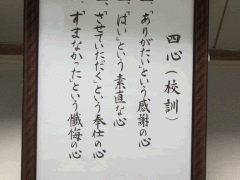 四心（校訓）
一、「ありがたい」という感謝の心
一、「はい」という素直な心
一、「させていただく」という奉仕の心
一、「すまなかった」という懺悔の心